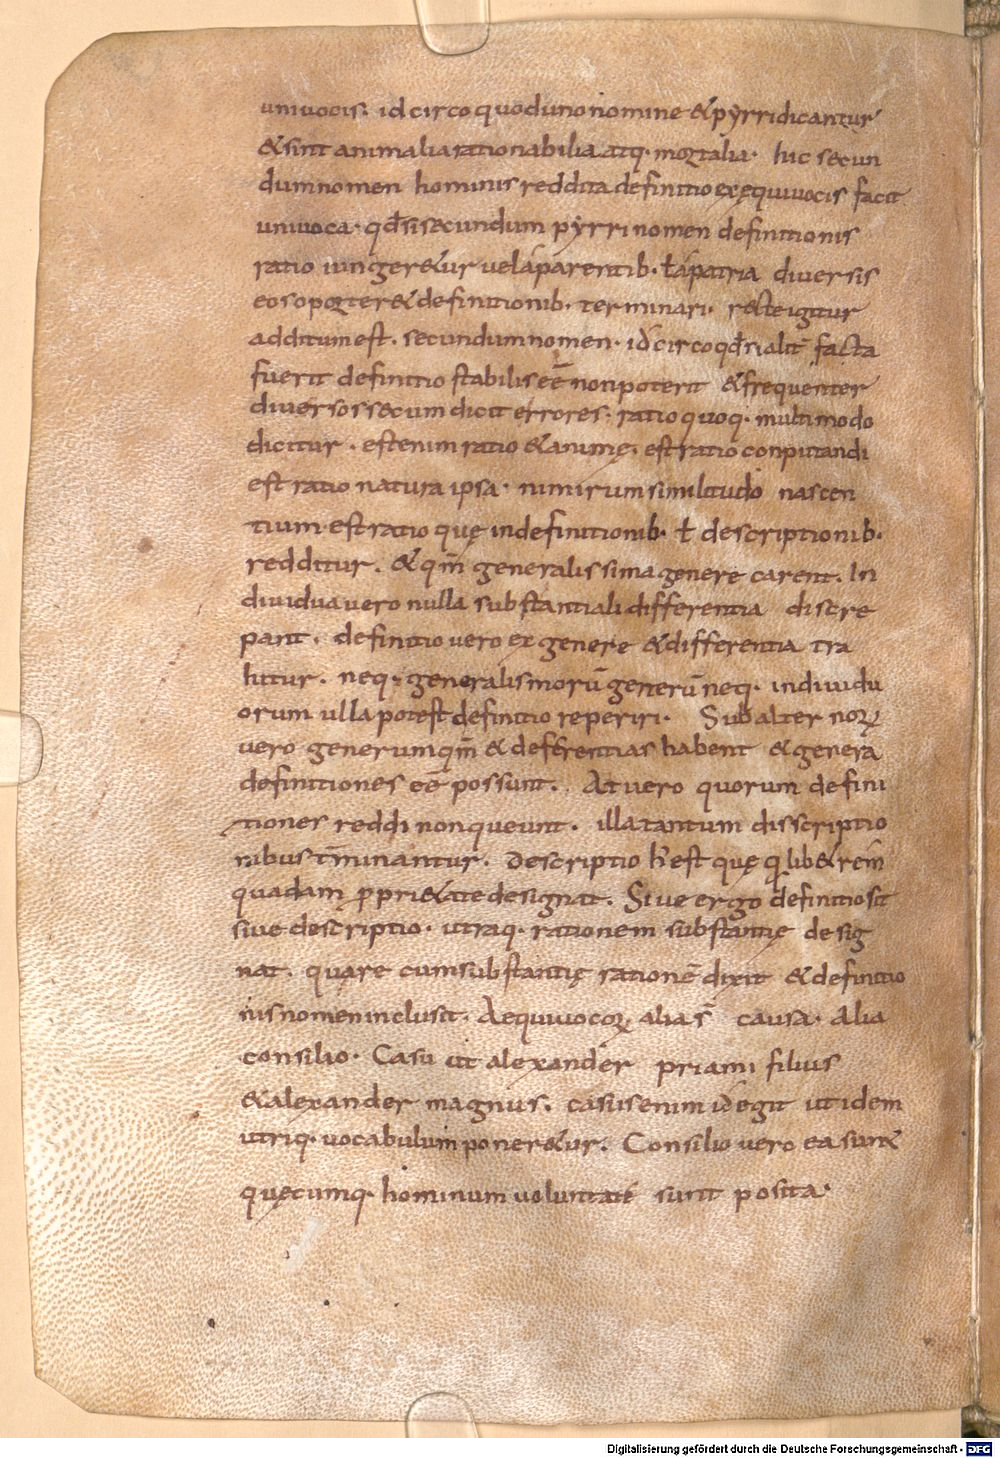 univocis. idcirco quod uno nomine & pyrri dicantur
& sint animalia rationabilia atq· mortalia· huc secun
dum nomen hominis reddita definitio ex ęquivocis facit
univoca· qđ si secundum pyrri nomen definitionis
ratio iunger&ur vel á parentib· ł á patria diversis
eos oporter& definitionib· terminari· r&te igitur
additum est· secundum nomen· idcirco qđ si alit̄ facta
fuerit definitio stabilis eē non poterit & frequenter
diversos secum dicit errores· ratio quoq· multimodo
dicitur· est enim ratio & animę· est ratio conputandi
est ratio natura ipsa· nimirum similitudo nascen
tium· est ratio quę in definitionib· ł descriptionib·
redditur. & qm̄ generalissima genere carent. In
dividua vero nulla substantiali differentia discre
pant. definitio vero ex genere & differentia tra
hitur. neq· generalismorū generū neq· individu
orum ulla potest definitio reperiri. Subalternorꝝ
vero generum qm̄ & defferentias habent & genera
definitiones eē possunt. At vero quorum defini
tiones reddi non queunt. illa tantum disscriptio
nibus t̄minantur. Descriptio h̄ est quę quilib& rem̄
quadam ꝓpri&ate designat. Sive ergo definitio sit
sive descriptio· utraq· rationem substantię desig
nat. quare cum substantię rationē dixit & definitio
nis nomen inclusit. Aequivocoꝝ alia s̄ causa· Alia
consilio· Casu ut alexander priami filius
& alexander magnus. casus enim id egit ut idem
utriq· vocabulum poner&ur. Consilio vero ea sunt
quęcumq· hominum voluntate sunt posita·
Digitalisierung gefördert durch die Deutsche Forschungsgemeinschaft · DFG